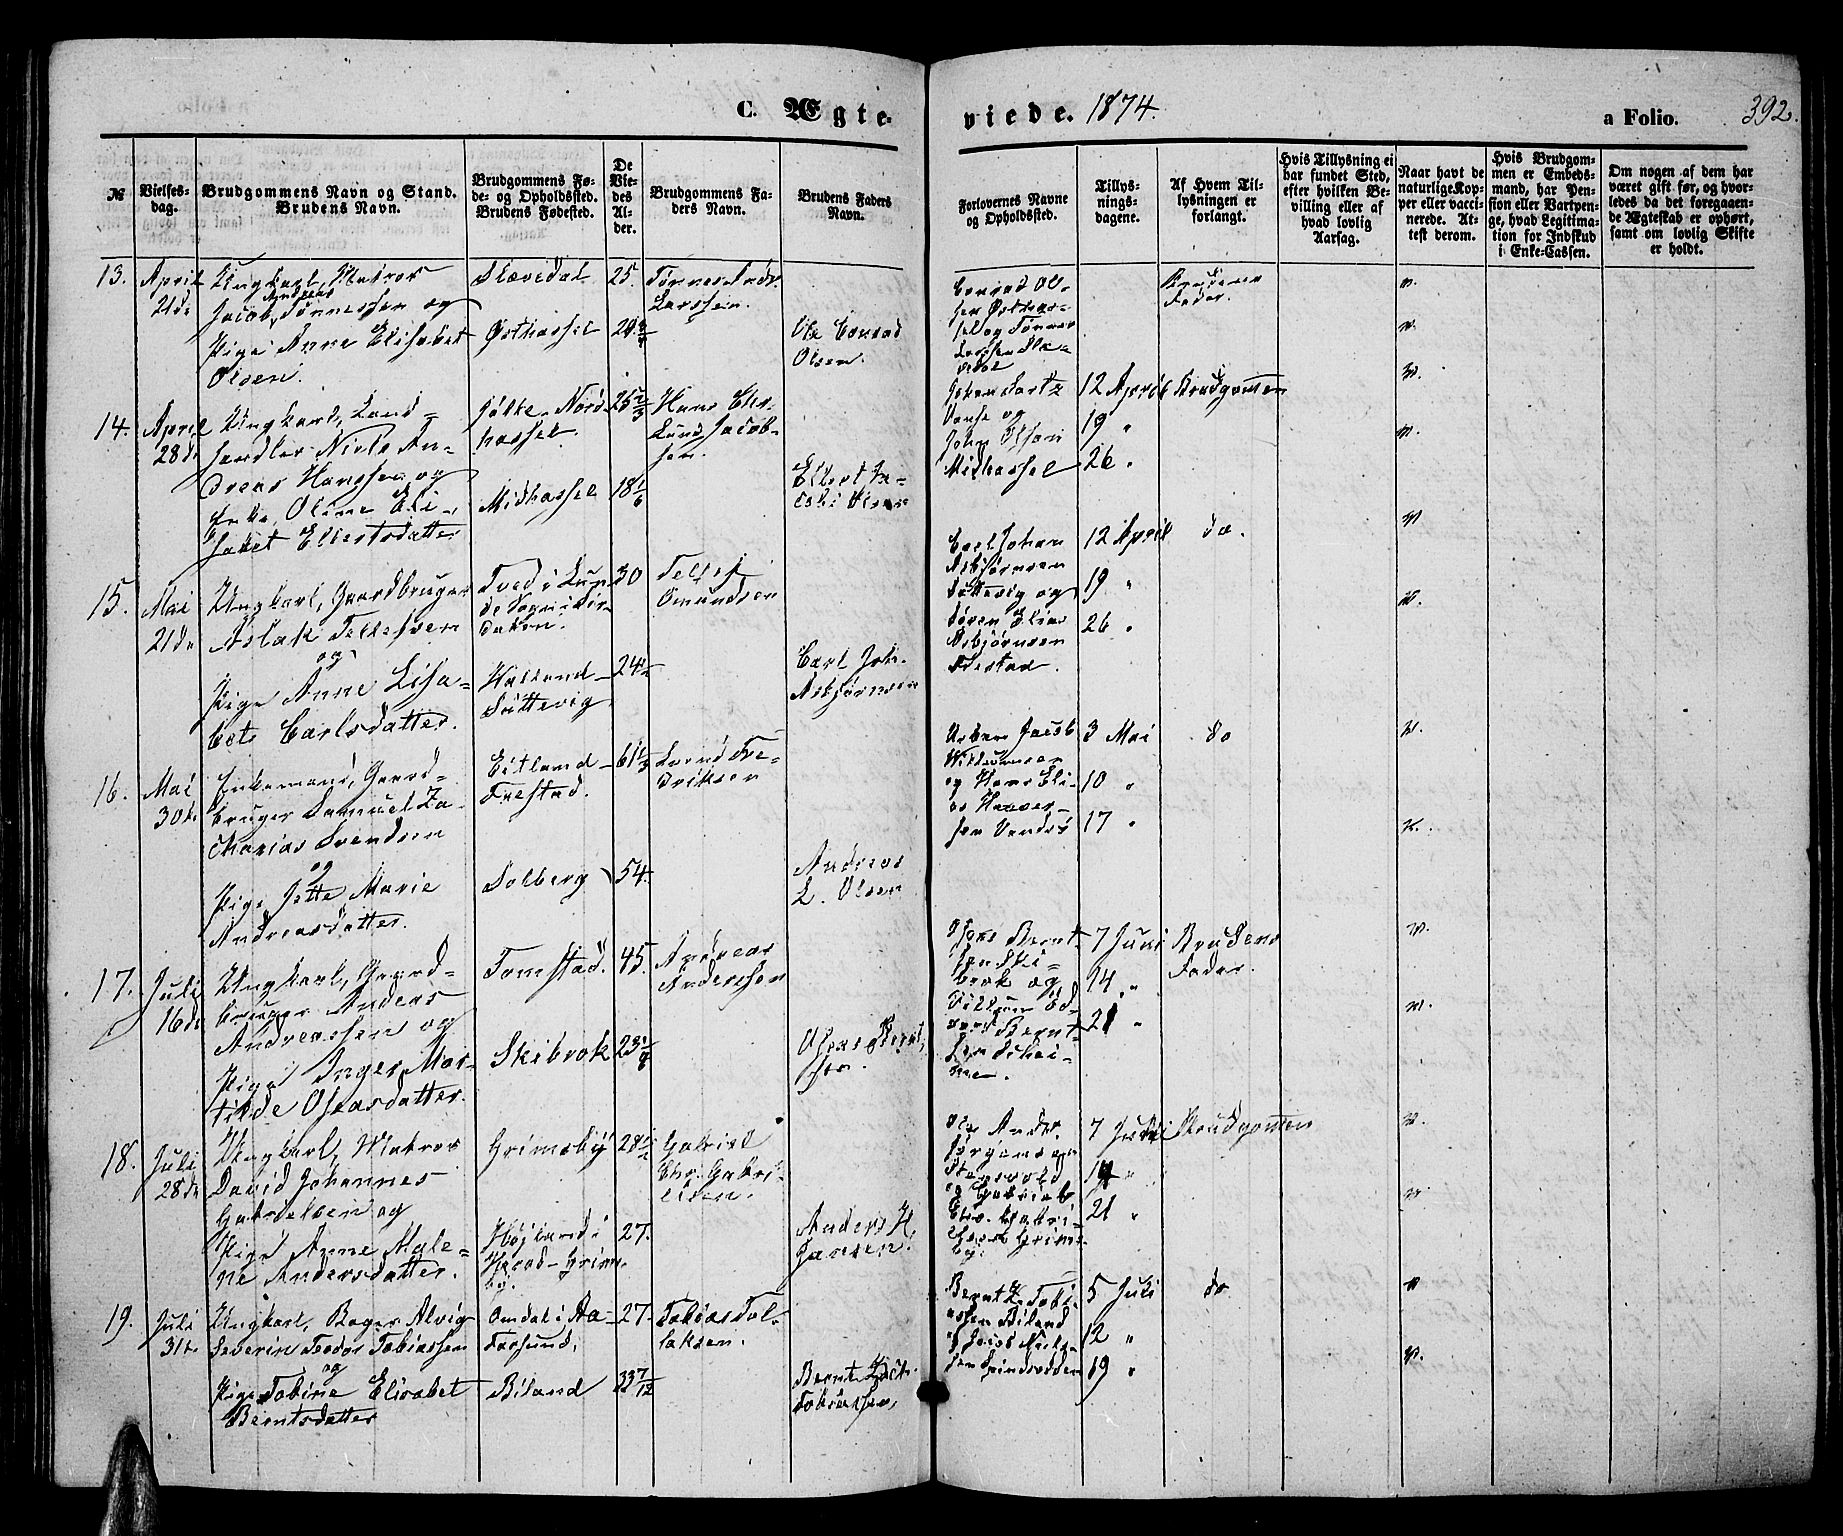 C. Ægte-
viede. 1874.
a Folio.
392.
№
Vielses-
dag.
Brudgommens Navn og Stand.
Brudens Navn.
Brudgommens Fø-
de- og Opholdssted.
Brudens Fødested.
De
Vie-
des
Al-
der.
Brudgommens Fa-
ders Navn.
Brudens Faders
Navn.
Forlovernes Navne
og Opholdssted.
Tillys-
nings-
dagene.
Af Hvem Til-
lysningen er
forlangt.
Hvis Tillysning ei
har fundet Sted,
efter hvilken Be-
villing eller af
hvad lovlig
Aarsag.
Naar havt de
naturlige Kop-
per eller vacci-
nerede. At-
test derom.
Hvis Brudgom-
men er Embeds-
mand, har Pen-
sion eller Vartpen-
ge, hvad Legitima-
tion for Indskud
i Enke-Cassen.
Om nogen af dem har
været gift før, og hvor-
ledes da det foregaaen-
de Ægteskab er ophørt,
samt om lovlig Skifte
er holdt.
13.
April
21de
Ungkarl, Matros
Andreas
Jacob Tønnessen og
Pige Anne Elisabet
Olsen.
Slævdal
Østhassel
25.
Tønnes Andr.
Larssen.
Ole Conrad
Olsen.
Conrad Ol-
sen Østhas-
sel og Tønnes
Brudens
Fader.
14.
April
28de
Ungkarl, Land-
handler Niels An-
dreas Hanssen og
Enke, Oline Eli-
sabet Ellertsdatter
Jølle-Nord-
hassel.
Midhassel
25 2/3
18 1/6
Hans Chr.
Lund Jacob-
sen.
Ellert Ja-
cobi Olsen
Vanse og
John Olsen
Midhassel
12 April
19 "
26 "
Brudgommen
15.
Mai
21de
Ungkarl, Gaardbruger
Aslak Tellefsen
og
Pige Anne Lisa-
bet Carlsdatter.
Tved i Lun-
de Sogn i Sir-
dalen.
Halland-
Sættevig
30
24 1/2
Tellef
Omundsen
Carl Joh.
Asbjørnsen
Carl Johan
Asbjørnsen
Sættevig og
Søren Elias
Asbjørnsen
Frestad.
12 April
19 "
26 "
do.
16.
Mai
30te
Enkemand, Gaard-
bruger Samuel Za-
charias Svendsen
og
Pige Jette Marie
Andreasdatter.
Eitland-
Frestad.
Solberg
61 1/3
54.
Svend Fre-
driksen
Andreas
L. Olsen
Jacob
og Hans Eli-
as Hanssen
3 Mai
10 "
17 "
do
17.
Juli
16de
Ungkarl, Gaard-
bruger Anders
Andreassen og
Pige Inger Mar-
tilde Oseasdatter.
Tomstad.
Skibrok
45.
Andreas
Anderssen
Oseas Bernt-
sen.
Oseas Bernt-
sen Ski-
brok og
Bernt-
7 Juni
14 "
21 "
Brudens
Fader.
18.
Juli
28de
Ungkarl, Matros
David Johannes
Gabrielsen og
Pige Anne Male-
ne Andersdatter.
Grimsby
Højland i
Herad-Grims-
by.
28 1/2
27.
Gabriel
Chr. Gabri-
elsen.
Anders H.
Jansen.
Ole Andr.
Jørgensen
Stensvold
og Gabriel
Chr. Gabri-
elsen Grims-
by.
7 Juni
14 "
21 "
Brudgommen
19.
Juli
31te
Ungkarl, Bager Alvig
Severin Teodor Tobiassen
og
Pige Tobine Elisabet
Berntsdatter
Omdal i Aa-
Farsund.
Biland
27.
33 7/12
Tobias Tol-
laksen.
Bernt Zach.
Tobiassen.
Bernt Z. Tobi-
assen Biland
5 Juli
12 "
19 "
do